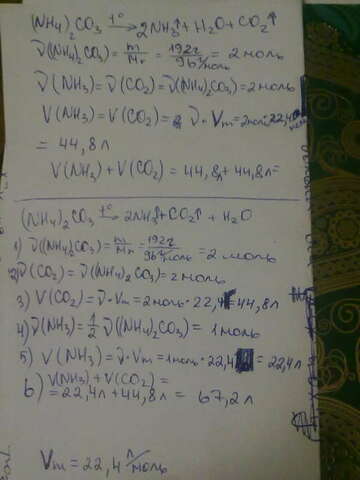 (NH₄)₂CO₃ —t°→ 2NH₃↑ + H₂O + CO₂↑
ν(NH₄)₂CO₃) = m/Mr = 192г/96г/моль = 2 моль
ν(NH₃) = ν(CO₂) = ν(NH₄)₂CO₃) = 2 моль
V(NH₃) = V(CO₂) = ν · Vm = 2моль · 22,4
= 44,8 л
V(NH₃) + V(CO₂) = 44,8л + 44,8л =
(NH₄)₂CO₃ —t°→ 2NH₃↑ + CO₂↑ + H₂O
1) ν((NH₄)₂CO₃) = m/Mr = 192г/96г/моль = 2 моль
2) ν(CO₂) = ν(NH₄)₂CO₃) = 2 моль
3) V(CO₂) = ν · Vm = 2 моль · 22,4 = 44,8 л
4) ν(NH₃) = 1/2 ν((NH₄)₂CO₃) = 1 моль
5) V(NH₃) = ν · Vm = 1 моль · 22,4 = 22,4л
6) V(NH₃) + V(CO₂) =
= 22,4л + 44,8л = 67,2 л
Vm = 22,4 л/моль